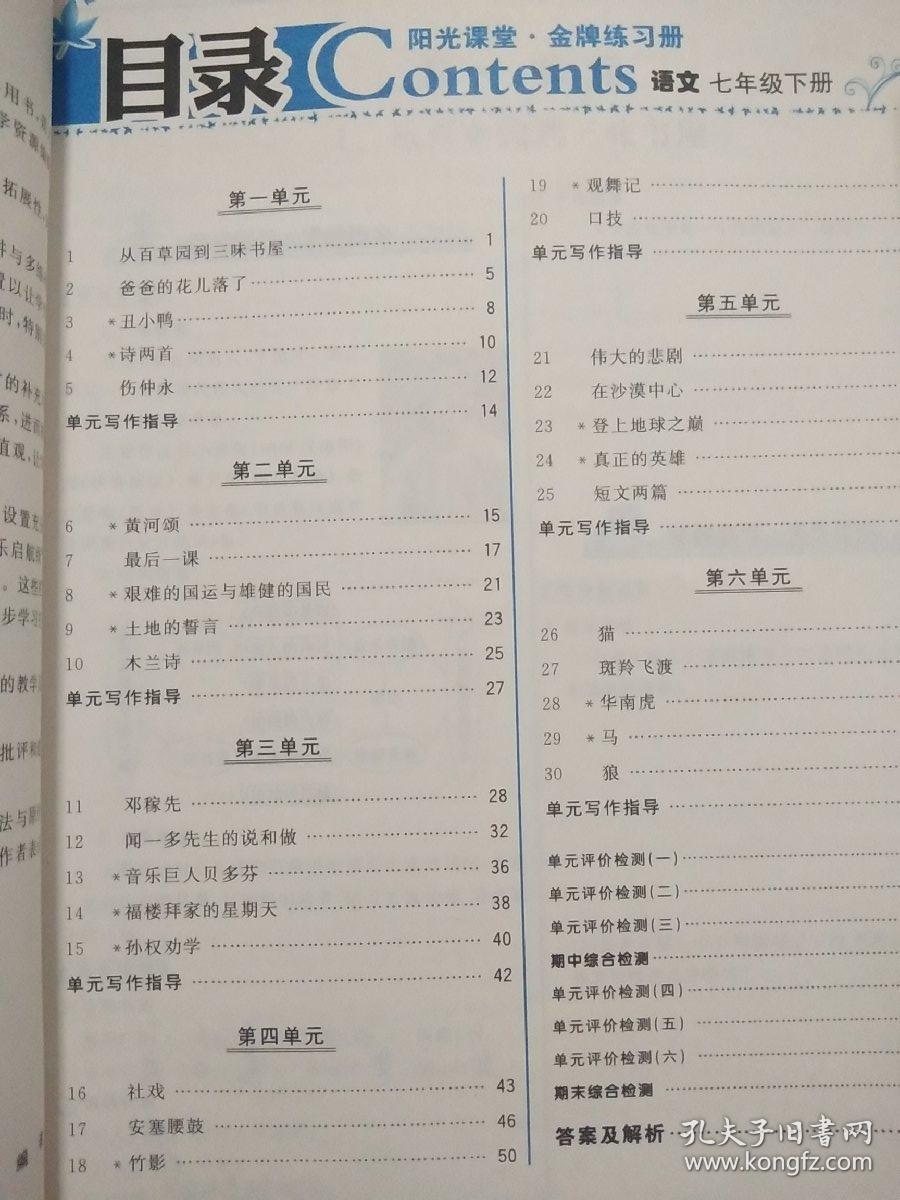 目录
Contents
阳光课堂·金牌练习册
语文 七年级下册
第一单元
1 从百草园到三味书屋 1
2 爸爸的花儿落了 5
3 *丑小鸭 8
4 *诗两首 10
5 伤仲永 12
单元写作指导 14
第二单元
6 *黄河颂 15
7 最后一课 17
8 *艰难的国运与雄健的国民 21
9 *土地的誓言 23
10 木兰诗 25
单元写作指导 27
第三单元
11 邓稼先 28
12 闻一多先生的说和做 32
13 *音乐巨人贝多芬 36
14 *福楼拜家的星期天 38
15 *孙权劝学 40
单元写作指导 42
第四单元
16 社戏 43
17 安塞腰鼓 46
18 *竹影 50
19 *观舞记
20 口技
单元写作指导
第五单元
21 伟大的悲剧
22 在沙漠中心
23 *登上地球之巅
24 *真正的英雄
25 短文两篇
单元写作指导
第六单元
26 猫
27 斑羚飞渡
28 *华南虎
29 *马
30 狼
单元写作指导
单元评价检测(一)
单元评价检测(二)
单元评价检测(三)
期中综合检测
单元评价检测(四)
单元评价检测(五)
单元评价检测(六)
期末综合检测
答案及解析
孔夫子旧书网
www.kongfz.com
用书
学资源
拓展性
件与多
以让学
时,特
的补充
系,进而
直观,让
设置充
乐启航
。这些
步学习
的教学
批评和
法与
作者表